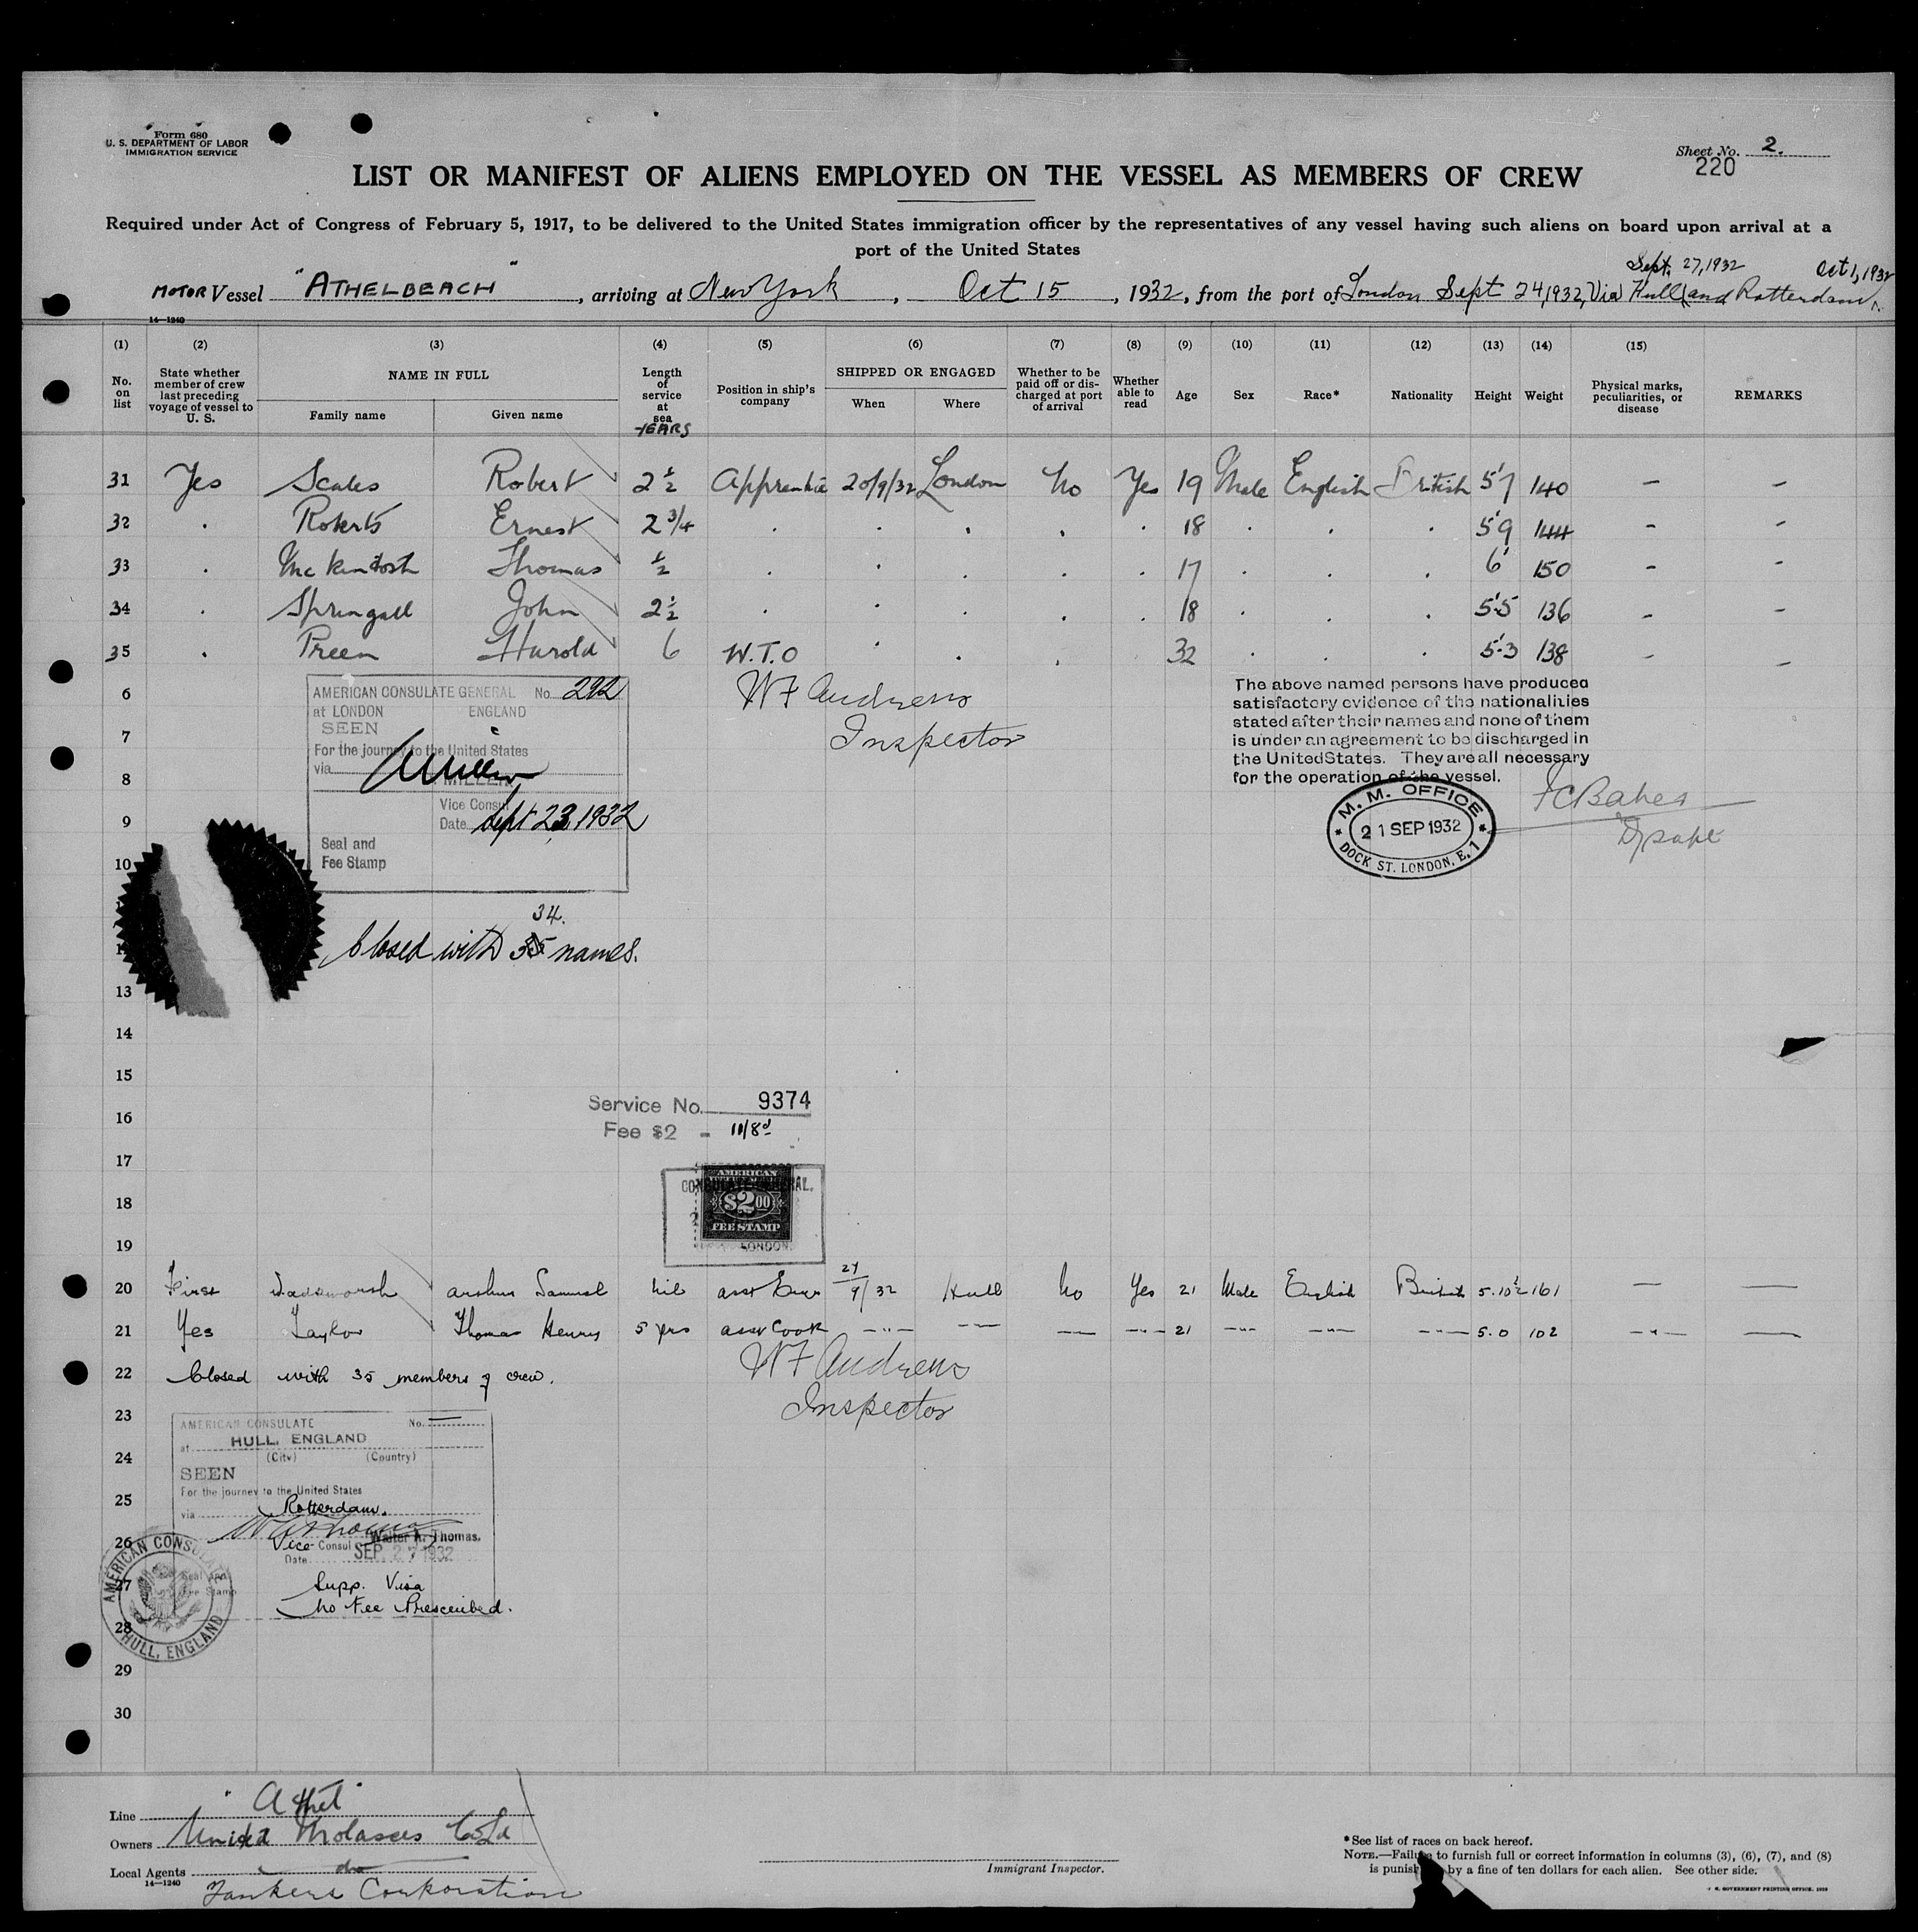 Form 680
U. S. DEPARTMENT OF LABOR
IMMIGRATION SERVICE
Sheet No. 2.
220
LIST OR MANIFEST OF ALIENS EMPLOYED ON THE VESSEL AS MEMBERS OF CREW
Required under Act of Congress of February 5, 1917, to be delivered to the United States immigration officer by the representatives of any vessel having such aliens on board upon arrival at a
port of the United States
Sept. 27, 1932 Oct 1, 1932
MOTOR Vessel "ATHELBEACH", arriving at New York, Oct 15, 1932, from the port of London Sept 24, 1932, Via Hull and Rotterdam
14—1240
(1) (2) (3) (4) (5) (6) (7) (8) (9) (10) (11) (12) (13) (14) (15)
No. on list
State whether member of crew last preceding voyage of vessel to U. S.
NAME IN FULL
Family name Given name
Length of service at sea YEARS
Position in ship's company
SHIPPED OR ENGAGED
When Where
Whether to be paid off or discharged at port of arrival
Whether able to read
Age Sex Race* Nationality Height Weight
Physical marks, peculiarities, or disease
REMARKS
31 Yes Scales Robert 2 1/2 Apprentice 20/9/32 London No Yes 19 Male English British 5'7 140 — —
32 . Roberts Ernest 2 3/4 . . . . . 18 . . . 5'9 144 - -
33 . McKintosh Thomas 1/2 . . . . . 17 . . . 6' 150 - -
34 . Springall John 2 1/2 . . . . . 18 . . . 5'5 136 - -
35 . Preen Harold 6 W.T.O . . . 32 . . . 5'3 138 - -
6
7
8
9
10
13
14
15
16
17
18
19
AMERICAN CONSULATE GENERAL No. 292
at LONDON ENGLAND
SEEN
For the journey to the United States
via
MILLER
Vice Consul
Date Sept 23, 1932
Seal and
Fee Stamp
W F Andrews
Inspector
The above named persons have produced
satisfactory evidence of the nationalities
stated after their names and none of them
is under an agreement to be discharged in
the United States. They are all necessary
for the operation of the vessel.
M. M. OFFICE
21 SEP 1932
DOCK ST. LONDON, E.1
34.
Closed with 35 names.
Service No. 9374
Fee $2 - 11/8d
AMERICAN
CONSULATE GENERAL,
$2.00
FEE STAMP
LONDON
20 First Wadsworth Arthur Samuel nil asst Engr 27/9/32 Hull No Yes 21 Male English British 5.10 1/2 161 — —
21 Yes Taylor Thomas Henry 5 yrs asst Cook —"— —"— — —"— 21 —"— —"— —"— 5.0 102 —"— —
22 Closed with 35 members of crew.
W F Andrews
Inspector
23
24
25
26
27
28
29
30
AMERICAN CONSULATE No. —
at HULL, ENGLAND
(City) (Country)
SEEN
For the journey to the United States
via Rotterdam.
Walter A. Thomas.
Vice Consul
Date SEP 27 1932
Seal and
Fee Stamp
Supp. Visa
No Fee Prescribed.
AMERICAN CONSULATE
HULL, ENGLAND
Line "Athel"
Owners United Molasses Co Ld
Local Agents do
14—1240
Tankers Corporation
Immigrant Inspector.
*See list of races on back hereof.
NOTE.—Failure to furnish full or correct information in columns (3), (6), (7), and (8)
is punishable by a fine of ten dollars for each alien. See other side.
U. S. GOVERNMENT PRINTING OFFICE